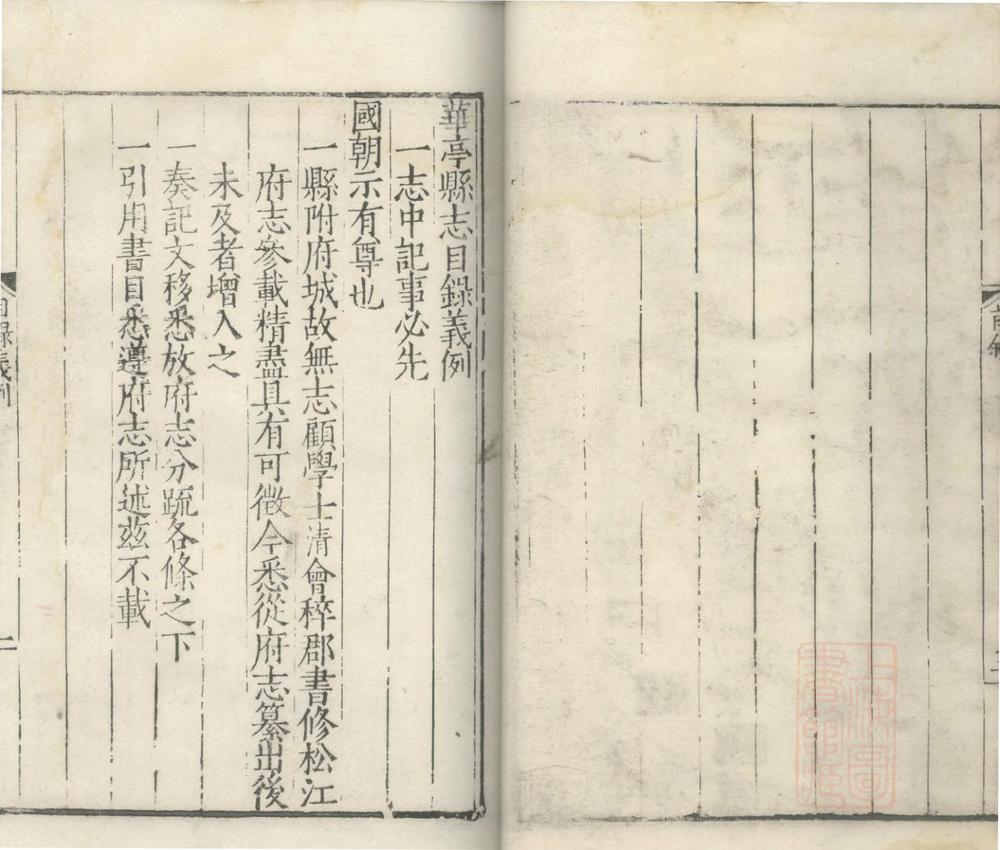 華亭縣志目錄義例
一志中記事必先
國朝示有尊也
一縣附府城故無志顧學士清會稡郡書修松江
府志參載精盡具有可徵今悉從府志纂出後
未及者增入之
一奏記文移悉放府志分疏各條之下
一引用書目悉遵府志所述茲不載
目錄義例